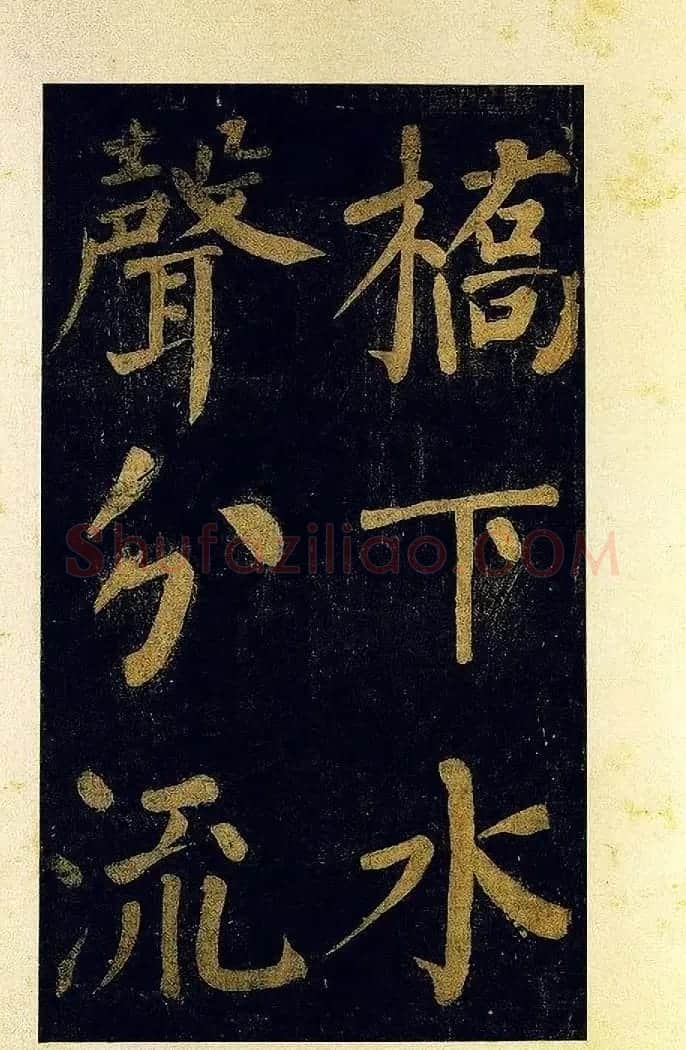 橋下水
聲分流
Shufaziliao.COM